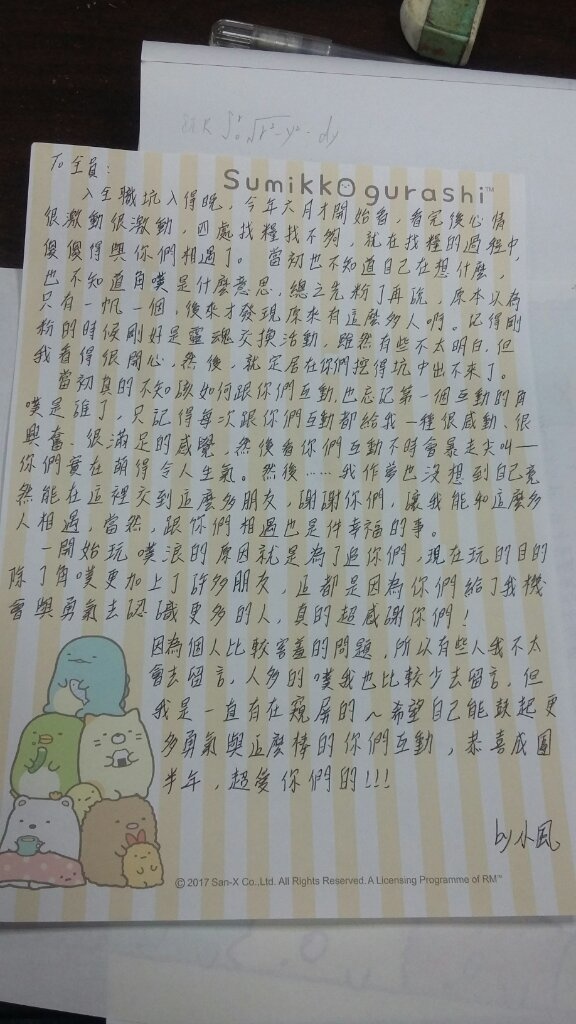 ∫₀ʳ √r²-y² · dy
To 全員：
Sumikkogurashi™
入全職坑入得晚，今年六月才開始看，看完後心情
很激動很激動，四處找糧找不夠，就在找糧的過程中，
傻傻得與你們相遇了。當初也不知道自己在想什麼，
也不知道角噗是什麼意思，總之先粉了再說，原本以為
只有一帆一個，後來才發現原來有這麼多人啊。記得剛
粉的時候剛好是靈魂交換活動，雖然有些不太明白，但
我看得很開心，然後，就定居在你們挖得坑中出不來了。
當初真的不知該如何跟你們互動，也忘記第一個互動的角
噗是誰了，只記得每次跟你們互動都給我一種很感動、很
興奮、很滿足的感覺，然後看你們互動不時會暴走尖叫——
你們實在萌得令人生氣。然後……我作夢也沒想到自己竟
然能在這裡交到這麼多朋友，謝謝你們，讓我能和這麼多
人相遇，當然，跟你們相遇也是件幸福的事。
一開始玩噗浪的原因就是為了追你們，現在玩的目的
除了角噗更加上了許多朋友，這都是因為你們給了我機
會與勇氣去認識更多的人，真的超感謝你們！
因為個人比較害羞的問題，所以有些人我不太
會去留言，人多的噗我也比較少去留言，但
我是一直有在窺屏的～希望自己能鼓起更
多勇氣與這麼棒的你們互動，恭喜成團
半年，超愛你們的!!!
by 小風
© 2017 San-X Co.,Ltd. All Rights Reserved. A Licensing Programme of RM™